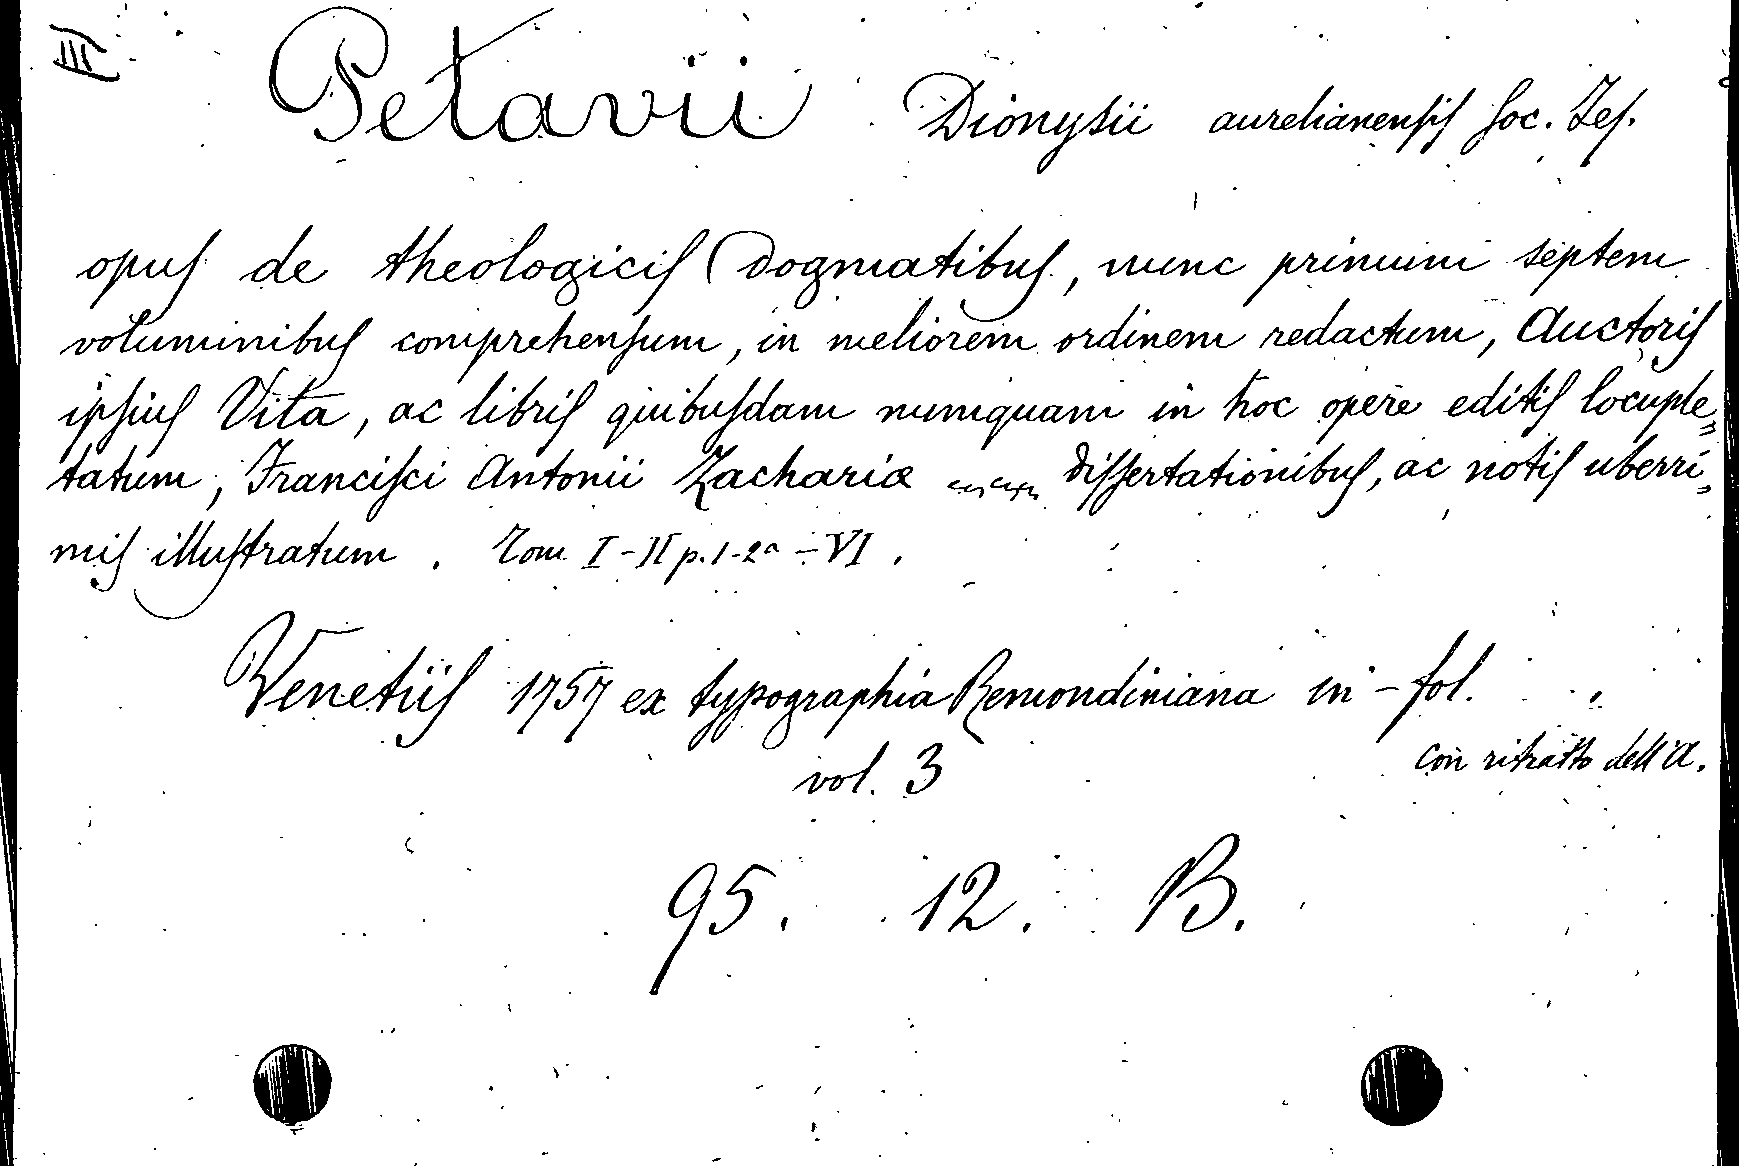 III)
Petavii Dionysii aurelianensis Soc. Jes.
opus de theologicis Dogmatibus, nunc primum septem
voluminibus comprehensum, in meliorem ordinem redactum, Auctoris
ipsius Vita, ac libris quibusdam numquam in hoc opere editis locuple„
tatum, Francisci Antonii Zachariæ dissertationibus, ac notis uberri„
mis illustratum. Tom I-II p. 1-2ª - VI.
Venetiis 1757 ex typographia Remondiniana in-fol.
con ritratto dell'A.
vol. 3
95. 12. B.